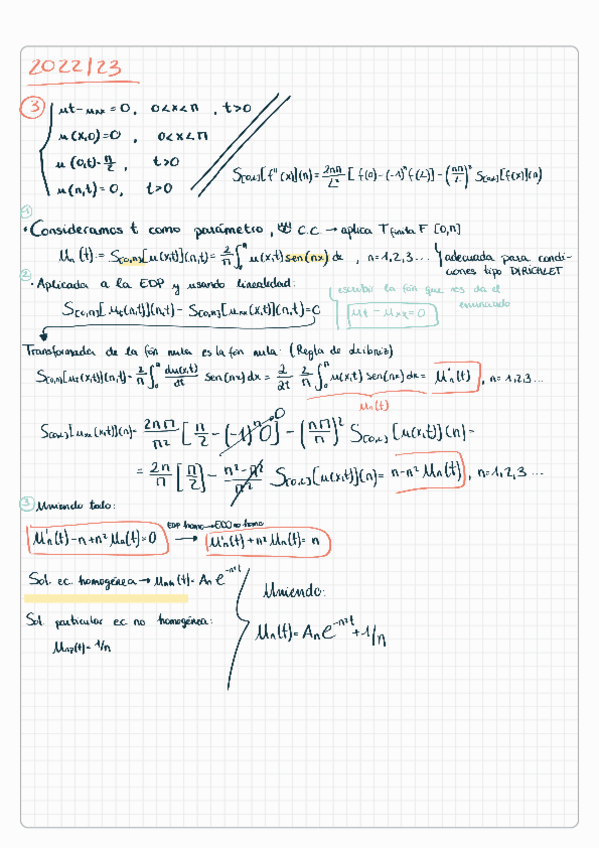 2022/23
③ ut - uxx = 0, 0<x<π, t>0
u(x,0)=0, 0<x<π
u(0,t)=π/2, t>0
u(π,t)=0, t>0
S[0,L][f''(x)](n)=2πn/L² [f(0)-(-1)ⁿf(L)]-(nπ/L)² S[0,L][f(x)](n)
①
• Consideramos t como parámetro, C.C → aplica T finita F [0,π]
Un(t):= S[0,π][u(x,t)](n,t)= 2/π ∫₀^π u(x,t) sen(nx) dx, n=1,2,3... adecuada para condiciones tipo DIRICHLET
②
• Aplicada a la EDP y usando linealidad:
S[0,π][ut(x,t)](n,t) - S[0,π][uxx(x,t)](n,t)=0
escribir la fón que nos da el enunciado
ut - uxx=0
Transformada de la fón nula es la fón nula. (Regla de Leibniz)
S[0,π][ut(x,t)](n,t)= 2/π ∫₀^π du(x,t)/dt sen(nx)dx = 2/2t 2/π ∫₀^π u(x,t) sen(nx)dx = U'n(t), n=1,2,3...
Un(t)
S[0,L][uxx(x,t)](n)= 2nπ/π² [π/2 - (-1)ⁿ0] - (nπ/π)² S[0,L][u(x,t)](n) =
0
= 2n/π [π/2] - n²·π²/π² S[0,L][u(x,t)](n)= n-n² Un(t), n=1,2,3...
③ Uniendo todo:
U'n(t)-n+n²Un(t)=0 EDP homo→EDO no homo → U'n(t)+n²Un(t)= n
Sol. ec. homogénea → Unh(t)= An e^-n²t
Sol particular ec no homogénea:
Unp(t)= 1/n
Uniendo:
Un(t)= An e^-n²t + 1/n